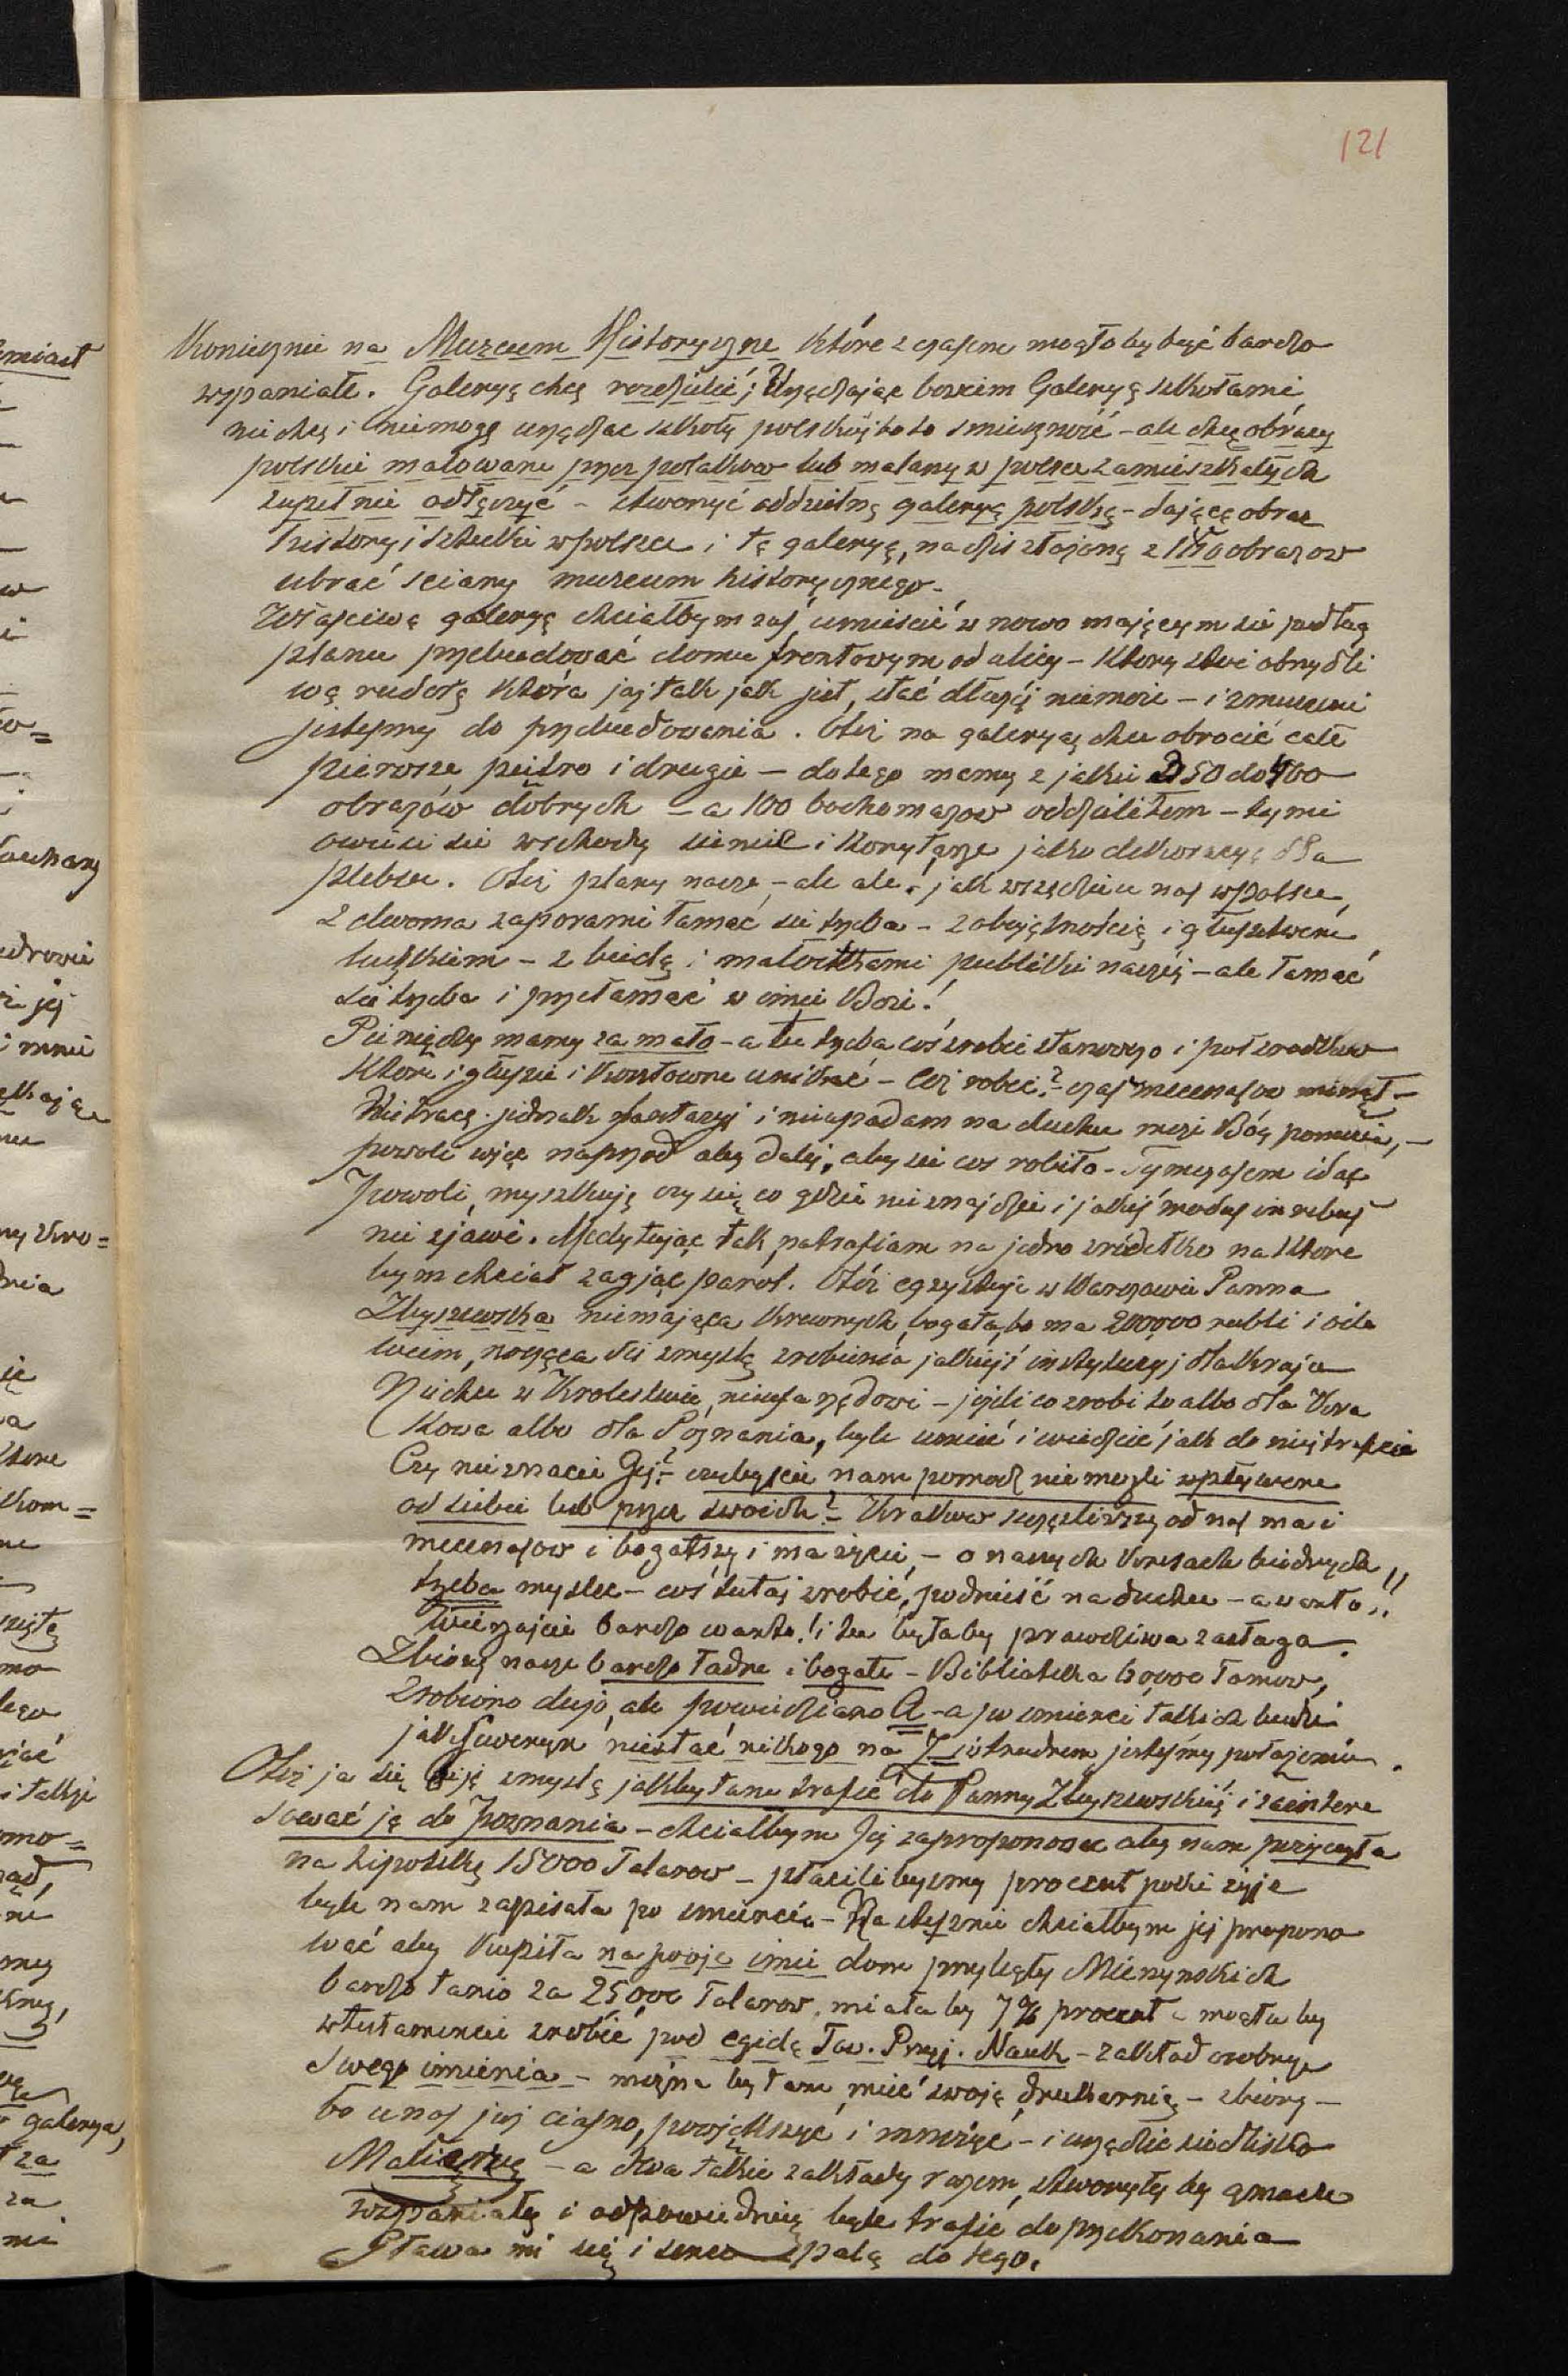 121
Koniecznie na Muzeum Historyczne które z czasem mogłoby być bardzo
wspaniałe. Galeryę chcę rozdzielić; Urządzając bowiem Galeryę szkołami
nie chcę i niemogę urządzac szkoły polskiéj bo to smieszność - ale chcę obrazy
polskie malowane przez polakow lub malarzy w polsce zamieszkałych
zupełnie odłączyć - stworzyć oddzielną galeryą polską - dającą obraz
history i sztuki w polsce i tę galeryę, na dziś złożoną z 150 obrazow
ubrać sciany muzeum historycznego.
Właściwą galeryę chciałbym zaś umieścić w nowo mającym sie podług
planu przebudować domu frontowym od ulicy - ktory stoi obrzydli
wą ruderą która jaj tak jak jest, stać dłużéj niemoże - i zmuszeni
jestesmy do przebudowania. Otóż na galeryą chcę obrocić całe
pierwsze piętro i drugie - do tego mamy z jakie 350 do 400
obrazów dobrych - a 100 bochomazow oddzieliłem - tymi
owiesi sie wschody sienie i korytarze jako dekoracyą dla
plebsu. Otóż plany nasze - ale ale! jak wszędzie u nas w Polsce,
z dwoma zaporami łamać się trzeba - z obojętnością i głupstwem
ludzkiem - z biedą i małostkami publiki naszéj - ale łamać
się trzeba i przełamać w imie Boże!
Pieniędzy mamy za mało - a tu trzeba coś zrobic stanowczo i połsrodkow
które i głupie i kosztowne unikać - Cóż robic? - czas mecenasow minął -
Nie tracę jednak fantazyi i nieupadam na duchu może Bóg pomoże, -
powoli więc naprzod aby daléj, aby sie cos robiło - Tymczasem idąc
powoli, myszkuję czy się co gdzie nie znajdzie i jakiś modus in rebus
nie zjawi. Medytując tak natrafiam na jedno zródełko na ktore
bym chciał zagiąć parol. Otóż egzystuje w Warszawie Panna
Zbyszewska niemająca krewnych, bogata, bo ma 200000 rubli i o ile
wiem, nosząca się z myslą zrobienia jakiéjś instytucyj dla kraju
Nie chce w Krolestwie, nieufa rządowi - jeżeli co zrobi to albo dla Kra
kowa albo dla Poznania, byle umieć i wiedzieć jak do niéj trafić
Czy nie znacie Jéj? - czybyscie nam pomodz nie mogli wpływem
od siebie lub przez swoich? - Krakow szczęśliwszy od nas ma i
mecenasow i bogatszy i ma życie, - o naszych kresach biednych
trzeba myslec - coś tutaj zrobić, podnieść na duchu - a warto!!
Wierzajcie bardzo warto! i tu byłaby prawdziwa zasługa.
Zbiory nasze bardzo ładne i bogate - Biblioteka 60,000 tomow,
Zrobiono dużo, ale powiedziano A - a po smierci takich ludzi
jak Seweryn niestać nikogo na Z i w trudnem jestesmy położeniu.
Otóż ja się biję z myslą jakby tam trafić do Panny Zbyszewskiéj i zaintere
sować ją do Poznania - chciałbym Jéj zaproponowac aby nam pożyczyła
na hipotekę 15000 Talarow - płacilibysmy procent poki żyje
byle nam zapisała po smierci - Następnie chciałbym jéj propono
wać aby kupiła na swoje imie dom przyległy Mierzynskich
bardzo tanio za 25,000 Talarow, miałaby 7% procent a mogłaby
w testamencie zrobić pod egidą Tow. Przyj. Nauk - zakład osobny
swego imienia - można by tam mieć swoję drukarnię - zbiory -
bo u nas już ciasno, powiększyć i mnożyć - i urządzić siedlisko
Macierzy - a dwa takie zakłady razem, stworzyły by gmach
wspaniały i odpowiedni, byle trafić do przekonania
Głowa mi się i serce palą do tego.